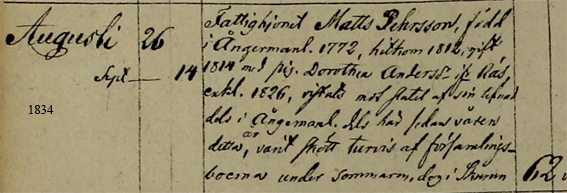 Augusti 26 Fattighjonet Matts Pehrsson, född
i Ångermanl. 1772, hitkom 1812, gift
Sept — 14 1814 med pig. Dorothea Andersd:r
enkl. 1826, mot slutet af sin lefnad
dels i Ångermanl. dels här sedan våren
1834
detta år, varit skött turvis af församlings-
boerna under sommaren, dog i 62